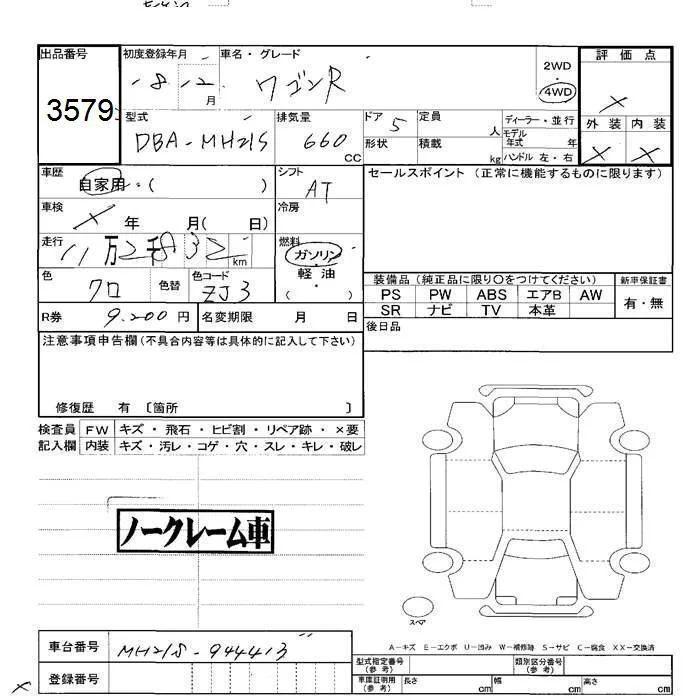 出品番号 初度登録年月 車名・グレード 評価点
3579 18 12 月 ワゴンR 2WD 4WD ×
型式 排気量 ドア 定員 ディーラー・並行 外装 内装
DBA-MH21S 660 CC 5 人 モデル年式 年
形状 積載 kg ハンドル 左・右 × ×
車歴 自家用・( ) シフト AT セールスポイント (正常に機能するものに限ります)
車検 × 年 月( 日) 冷房
走行 11万2千832 km 燃料 ガソリン・軽油・( )
色 クロ 色替 色コード ZJ3
装備品 (純正品に限り○をつけてください) 新車保証書
PS PW ABS エアB AW 有・無
SR ナビ TV 本革
R券 9,200円 名変期限 月 日 後日品
注意事項申告欄(不具合内容等は具体的に記入して下さい)
修復歴 有 〔箇所 〕
検査員 FW キズ・飛石・ヒビ割・リペア跡・×要
記入欄 内装 キズ・汚レ・コゲ・穴・スレ・キレ・破レ
ノークレーム車
スペア
A-キズ E-エクボ U-凹み W-補修跡 S-サビ C-腐食 XX-交換済
車台番号 MH21S-944413
登録番号
型式指定番号(参考) 類別区分番号(参考)
車庫証明用(参考) 長さ cm 幅 cm 高さ cm
×